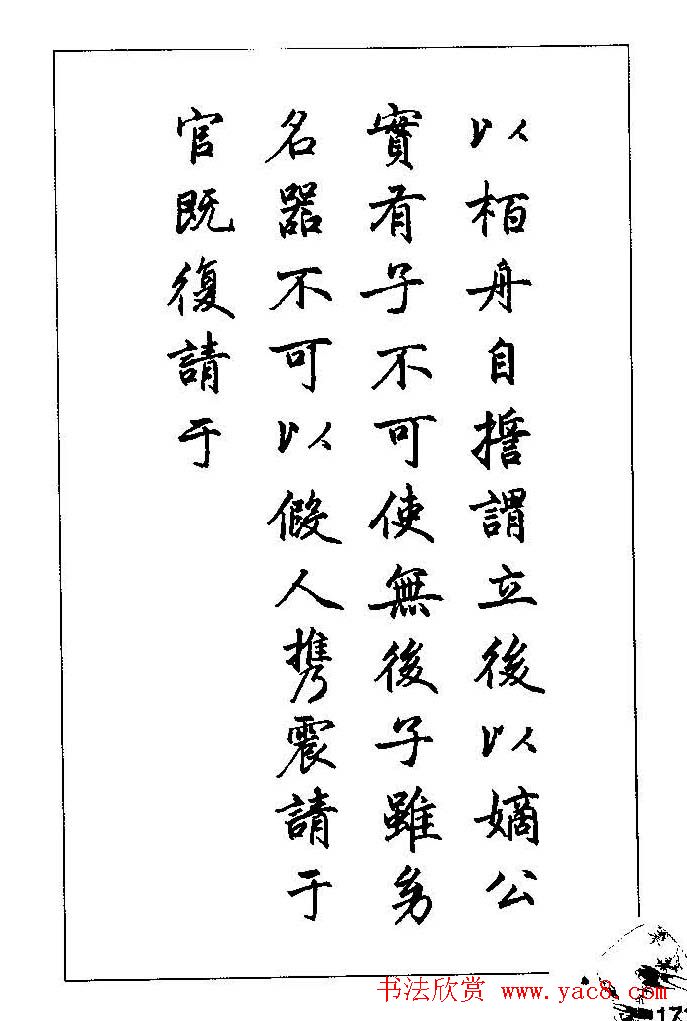 以栢舟自擔謂立後以嫡公
實有子不可使無後子雖㓜
名器不可以假人携震請于
官既復請于
书法欣赏 www.yac8.com